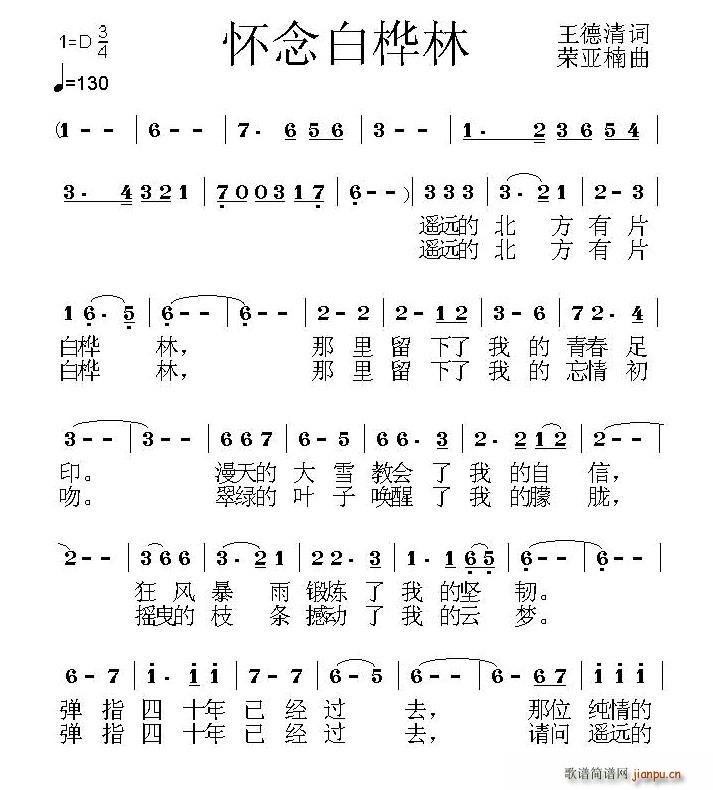 1=D 3/4 怀念白桦林 王德清词
♩=130 荣亚楠曲
(1 - - | 6 - - | 7. 6 5 6 | 3 - - | 1. 2 3 6 5 4 |
3. 4 3 2 1 | 7 0 0 3 1 7 | 6 - - ) | 3 3 3 | 3. 2 1 | 2 - 3 |
遥远的 北 方 有 片
遥远的 北 方 有 片
1 6. 5 | 6 - - | 6 - - | 2 - 2 | 2 - 1 2 | 3 - 6 | 7 2. 4 |
白桦 林, 那 里 留 下了 我 的 青春 足
白桦 林, 那 里 留 下了 我 的 忘情 初
3 - - | 3 - - | 6 6 7 | 6 - 5 | 6 6. 3 | 2. 2 1 2 | 2 - - |
印。 漫天的 大 雪 教会 了 我 的自 信,
吻。 翠绿的 叶 子 唤醒 了 我 的朦 胧,
2 - - | 3 6 6 | 3. 2 1 | 2 2. 3 | 1. 1 6 5 | 6 - - | 6 - - |
狂 风 暴 雨 锻炼 了 我 的坚 韧。
摇曳的 枝 条 撼动 了 我 的云 梦。
6 - 7 | 1. 1 1 | 7 - 7 | 6 - 5 | 6 - - | 6 - 6 7 | 1 1 1 |
弹 指 四 十年 已 经 过 去, 那位 纯情的
弹 指 四 十年 已 经 过 去, 请问 遥远的
歌谱简谱网 jianpu.cn